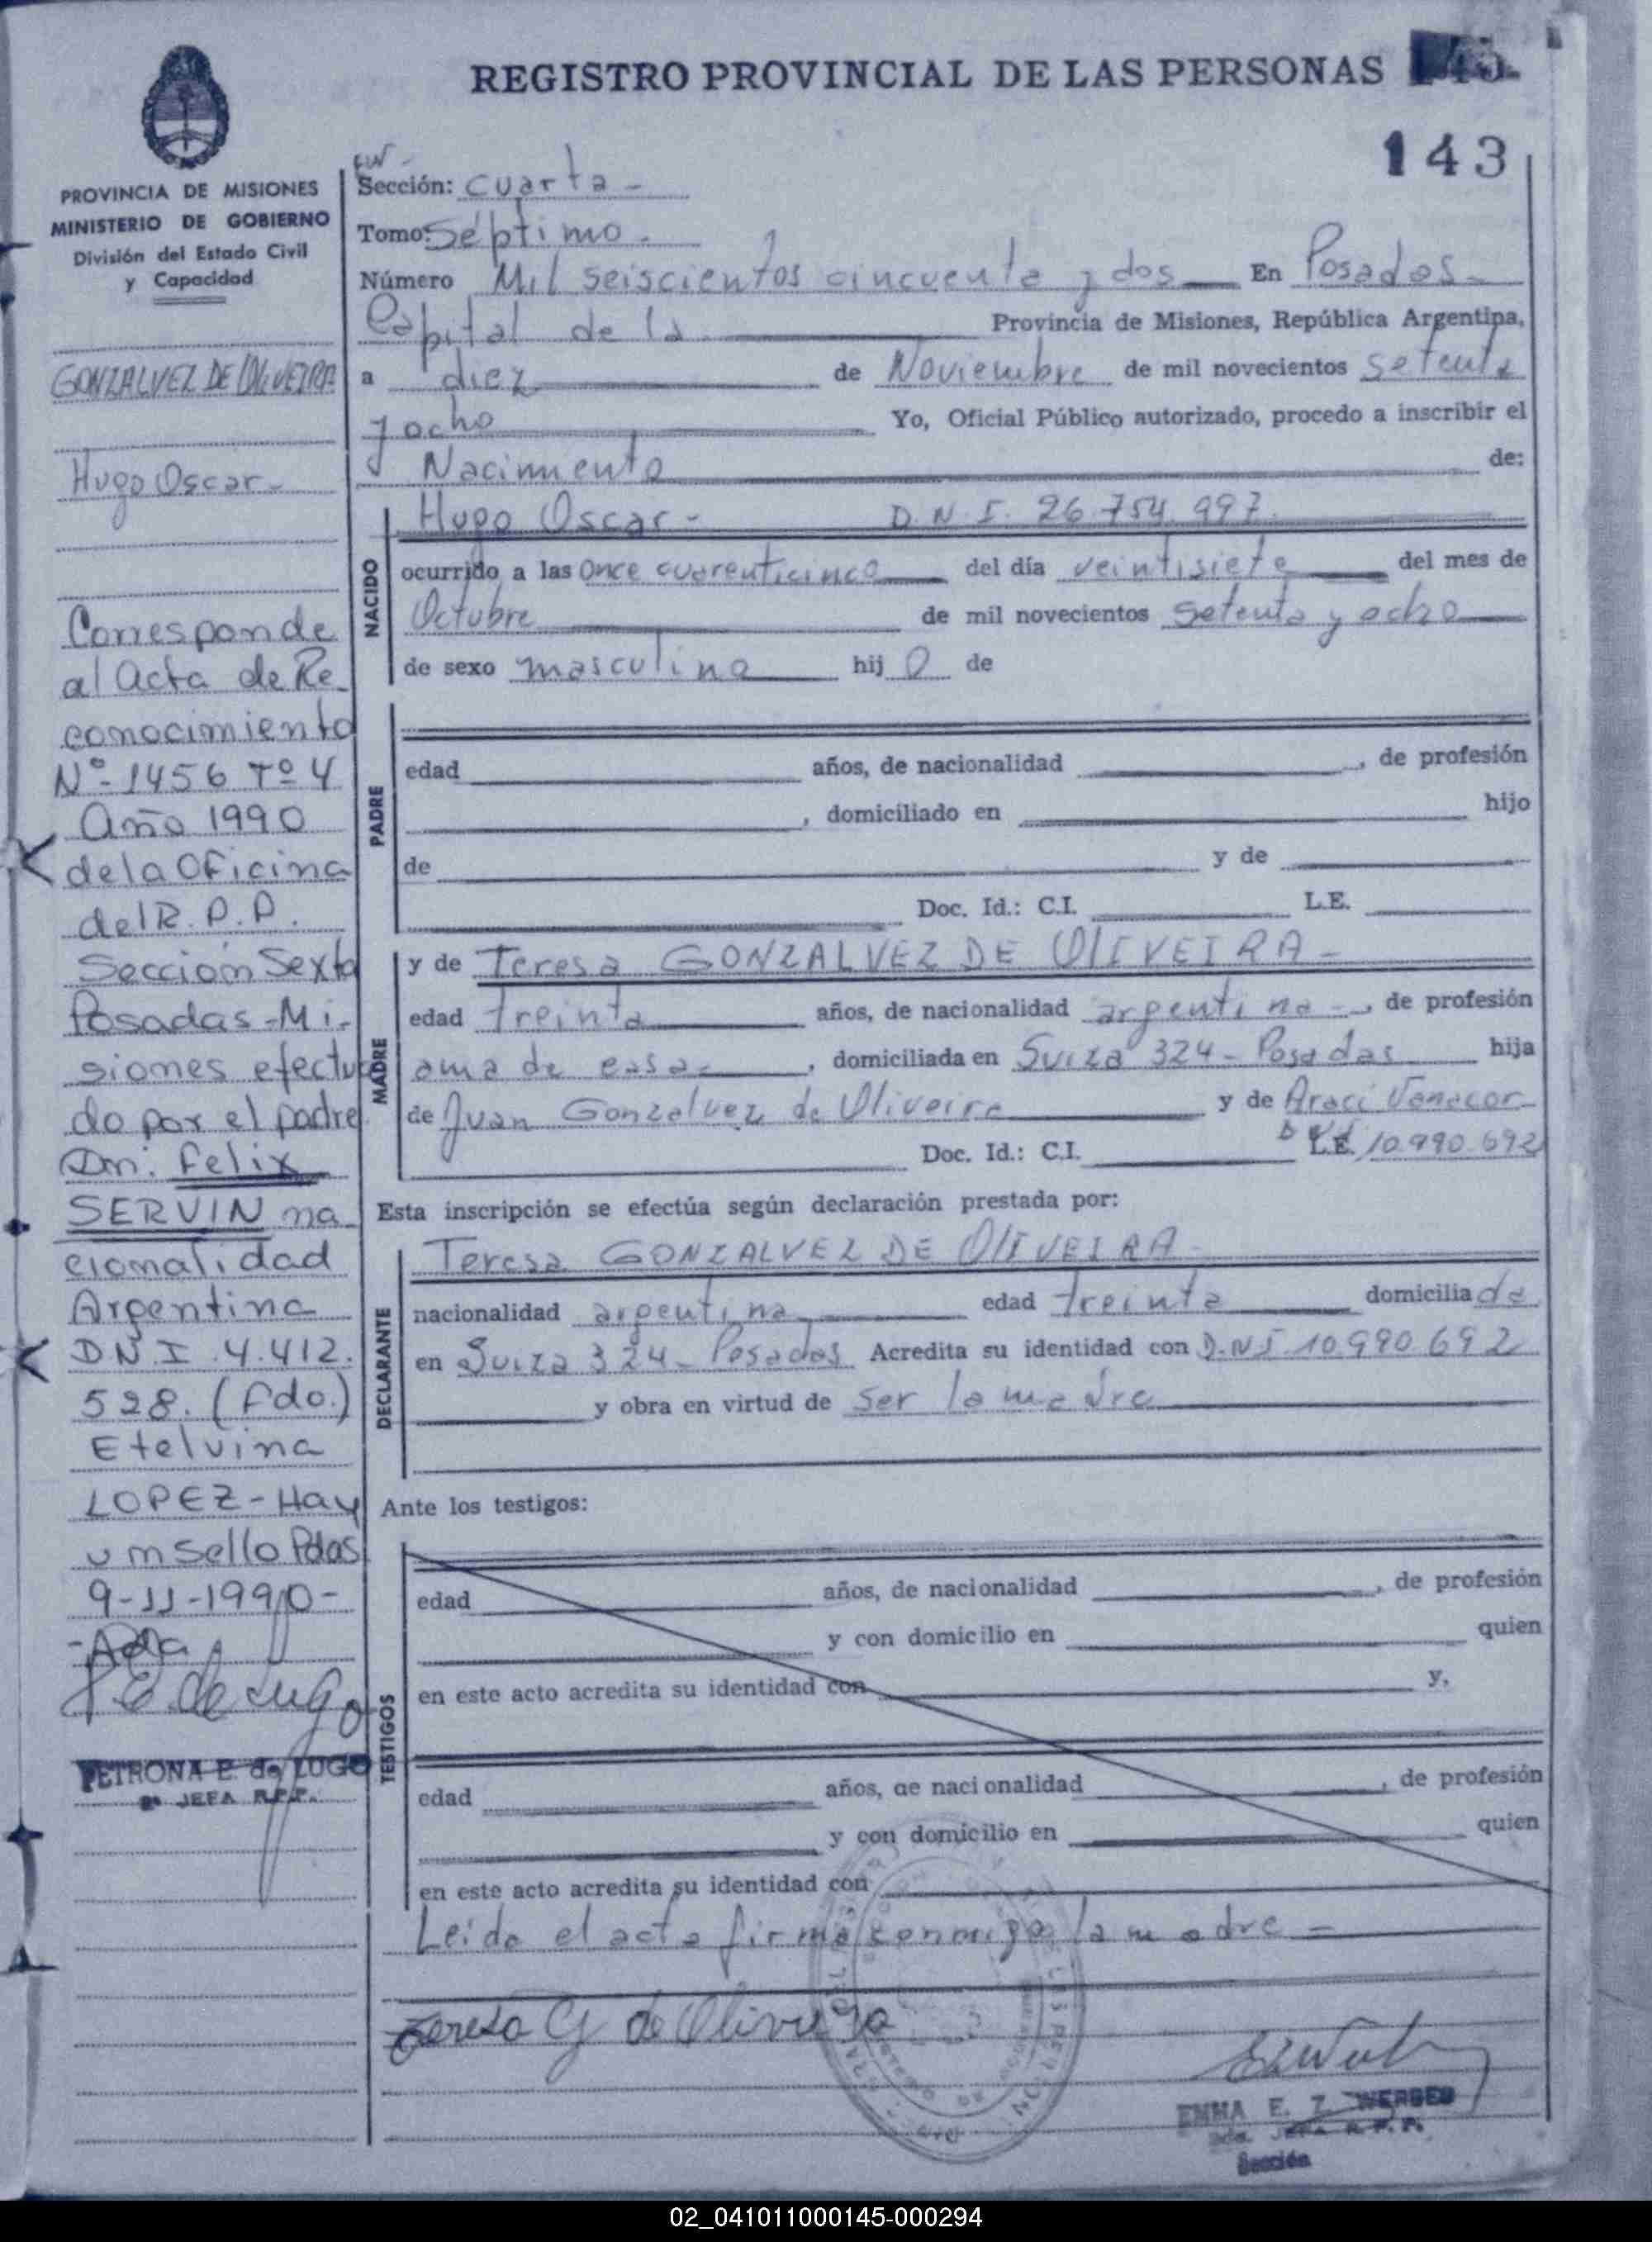 REGISTRO PROVINCIAL DE LAS PERSONAS
143
PROVINCIA DE MISIONES
MINISTERIO DE GOBIERNO
División del Estado Civil
y Capacidad
GONZALVEZ DE OLIVEIRA
Hugo Oscar-
Corresponde
al Acta de Re
conocimiento
Nº-1456 Tº 4
Año 1990
de la Oficina
del R. P. P.
Sección Sexta
Posadas-Mi-
siones efectua
do por el padre
Dn: Felix
SERVIN na
cionalidad
Argentina
D N. I. 4.412.
528. (fdo.)
Etelvina
LOPEZ-Hay
un sello Pdas
9-11-1990-
PETRONA E. de LUGO
JEFA R.P.P.
Sección: cuarta-
Tomo: Séptimo.
Número Mil seiscientos cincuenta y dos En Posadas-
Capital de la Provincia de Misiones, República Argentina,
a diez de Noviembre de mil novecientos setenta
y ocho Yo, Oficial Público autorizado, procedo a inscribir el
Nacimiento de:
NACIDO
Hugo Oscar- D. N. I. 26.754.997.
ocurrido a las once cuarenticinco del día veintisiete del mes de
Octubre de mil novecientos setenta y ocho
de sexo masculino hij o de
PADRE
edad años, de nacionalidad , de profesión
, domiciliado en hijo
de y de
Doc. Id.: C.I. L.E.
MADRE
y de Teresa GONZALVEZ DE OLIVEIRA-
edad treinta años, de nacionalidad argentina-, de profesión
ama de casa- , domiciliada en Suiza 324- Posadas hija
de Juan Gonzalvez de Oliveira y de Araci Vanacor
Doc. Id.: C.I. L.E. 10.990.692
Esta inscripción se efectúa según declaración prestada por:
DECLARANTE
Teresa GONZALVEZ DE OLIVEIRA-
nacionalidad argentina edad treinta domiciliada
en Suiza 324- Posadas Acredita su identidad con D.N.I. 10.990.692
y obra en virtud de ser la madre
Ante los testigos:
TESTIGOS
edad años, de nacionalidad , de profesión
y con domicilio en quien
en este acto acredita su identidad con y,
edad años, de nacionalidad , de profesión
y con domicilio en quien
en este acto acredita su identidad con
Leida el acta firma conmigo la madre-
Teresa G de Oliveira
EMMA E. Z. WERBES
JEFA R.P.P.
Sección
02_041011000145-000294